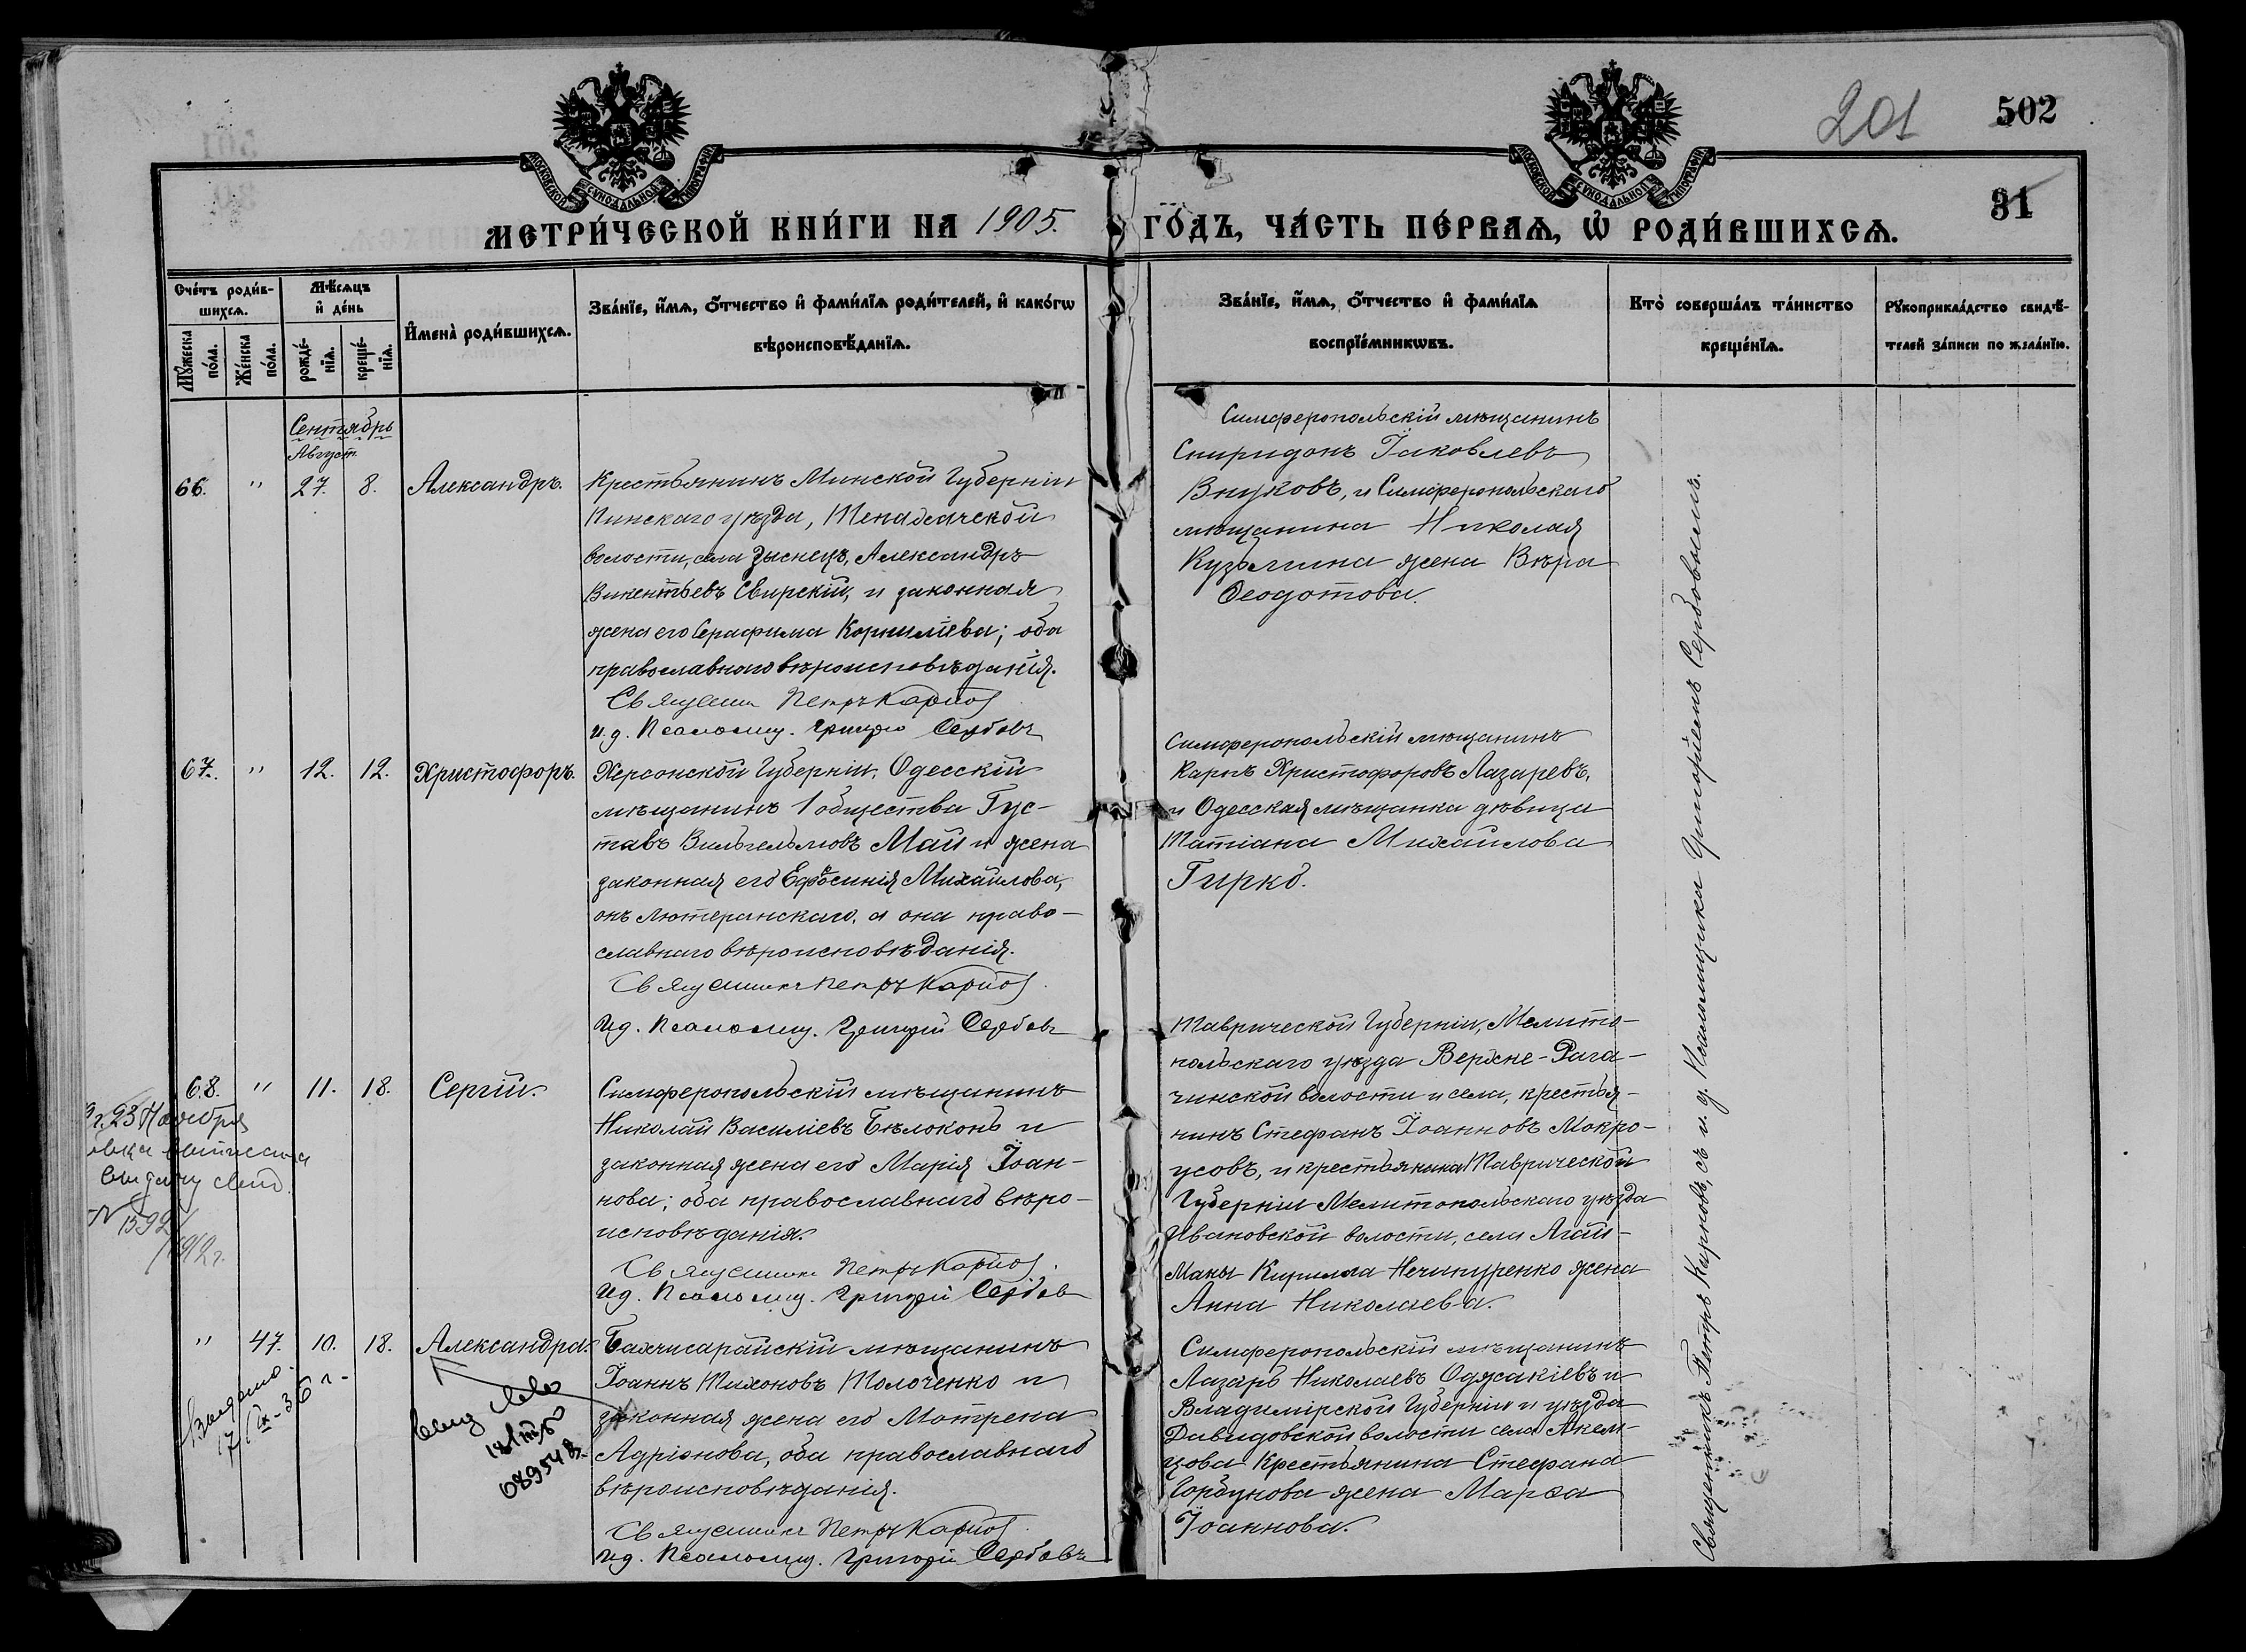 201
502
31
МОСКОВСКОЙ СѴНОДАЛЬНОЙ ТИПОГРАФІИ
МОСКОВСКОЙ СѴНОДАЛЬНОЙ ТИПОГРАФІИ
МЕТРИ́ЧЕСКОЙ КНИ́ГИ НА 1905. ГО́ДЪ, ЧА́СТЬ ПЕ́РВАѦ, Ѡ РОДИ́ВШИХСѦ.
Сче́тъ роди́в-
шихсѧ.
Мꙋ́жеска по́ла.
Же́нска по́ла.
Мѣ́сѧцъ
и҆ де́нь
рожде́-
нїѧ.
креще́-
нїѧ.
И҆мена̀ роди́вшихсѧ.
Зва́нїе, и҆́мѧ, ѻ҆́тчество и҆ фами́лїѧ роди́телей, и҆ како́гѡ
вѣроисповѣ́данїѧ.
Зва́нїе, и҆́мѧ, ѻ҆́тчество и҆ фами́лїѧ
воспрїе́мникѡвъ.
Кто̀ соверша́лъ та́инство
креще́нїѧ.
Рꙋкоприкла́дство свидѣ́-
телей за́писи по жела́нїю.
Сентябрь
Август.
66. " 27. 8. Александръ.
Крестьянинъ Минской Губерніи
Пинскаго уѣзда,
волости, села Александръ
Викентьевъ Свирскій, и законная
жена его Серафима Корниліева; оба
православнаго вѣроисповѣданія.
Священникъ Петръ Карпов
и. д. Псаломщ. Григорій Сербовъ
Симферопольскій мѣщанинъ
Спиридонъ Іаковлевъ
Внуковъ, и Симферопольскаго
мѣщанина Николая
Кузьмина жена Вѣра
Ѳеодотова.
67. " 12. 12. Христофоръ.
Херсонской Губерніи, Одесскій
мѣщанинъ 1 общества Гус-
тавъ Вильгельмовъ Май и жена
законная его Ефросинія Михаилова,
онъ лютеранскаго, а она право-
славнаго вѣроисповѣданія.
Священникъ Петръ Карпов
ид. Псаломщ. Григорій Сербовъ
Симферопольскій мѣщанинъ
Карпъ Христофоровъ Лазаревъ,
и Одесская мѣщанка дѣвица
Татіана Михаилова
Гирко.
68. " 11. 18. Сергій.
Симферопольскій мѣщанинъ
Николай Василіевъ Бѣлоконь и
законная жена его Марія Іоан-
нова; оба православнаго вѣро-
исповѣданія.
Священникъ Петръ Карпов
ид. Псаломщ. Григорій Сербовъ
23 Ноября
выписка
выдачу свид.
N 1592
1912 г.
Таврической Губерніи, Мелито-
польскаго уѣзда Верхне-Рага-
чинской волости и села, крестья-
нинъ Стефанъ Іоанновъ Мокро-
усовъ, и крестьянина Таврической
Губерніи Мелитопольскаго уѣзда
Ивановской волости, села Агай-
маны Кирилла Нечипуренко жена
Анна Николаева.
" 47. 10. 18. Александра.
Бахчисарайскій мѣщанинъ
Іоаннъ Тихоновъ Толоченко и
законная жена его Мотрена
Адріонова, оба православнаго
вѣроисповѣданія.
Священникъ Петръ Карпов
ид. Псаломщ. Григорій Сербовъ
Выдано
17/IX-36 г.
089548
Симферопольскій мѣщанинъ
Лазарь Николаевъ Оджакіевъ и
Владимірской Губерніи и уѣзда
Давидовской волости села
Крестьянина Стефана
Горбунова жена Марѳа
Іоаннова.
Священникъ Петръ Карповъ, съ и. д. Псаломщика Григоріемъ Сербовымъ.